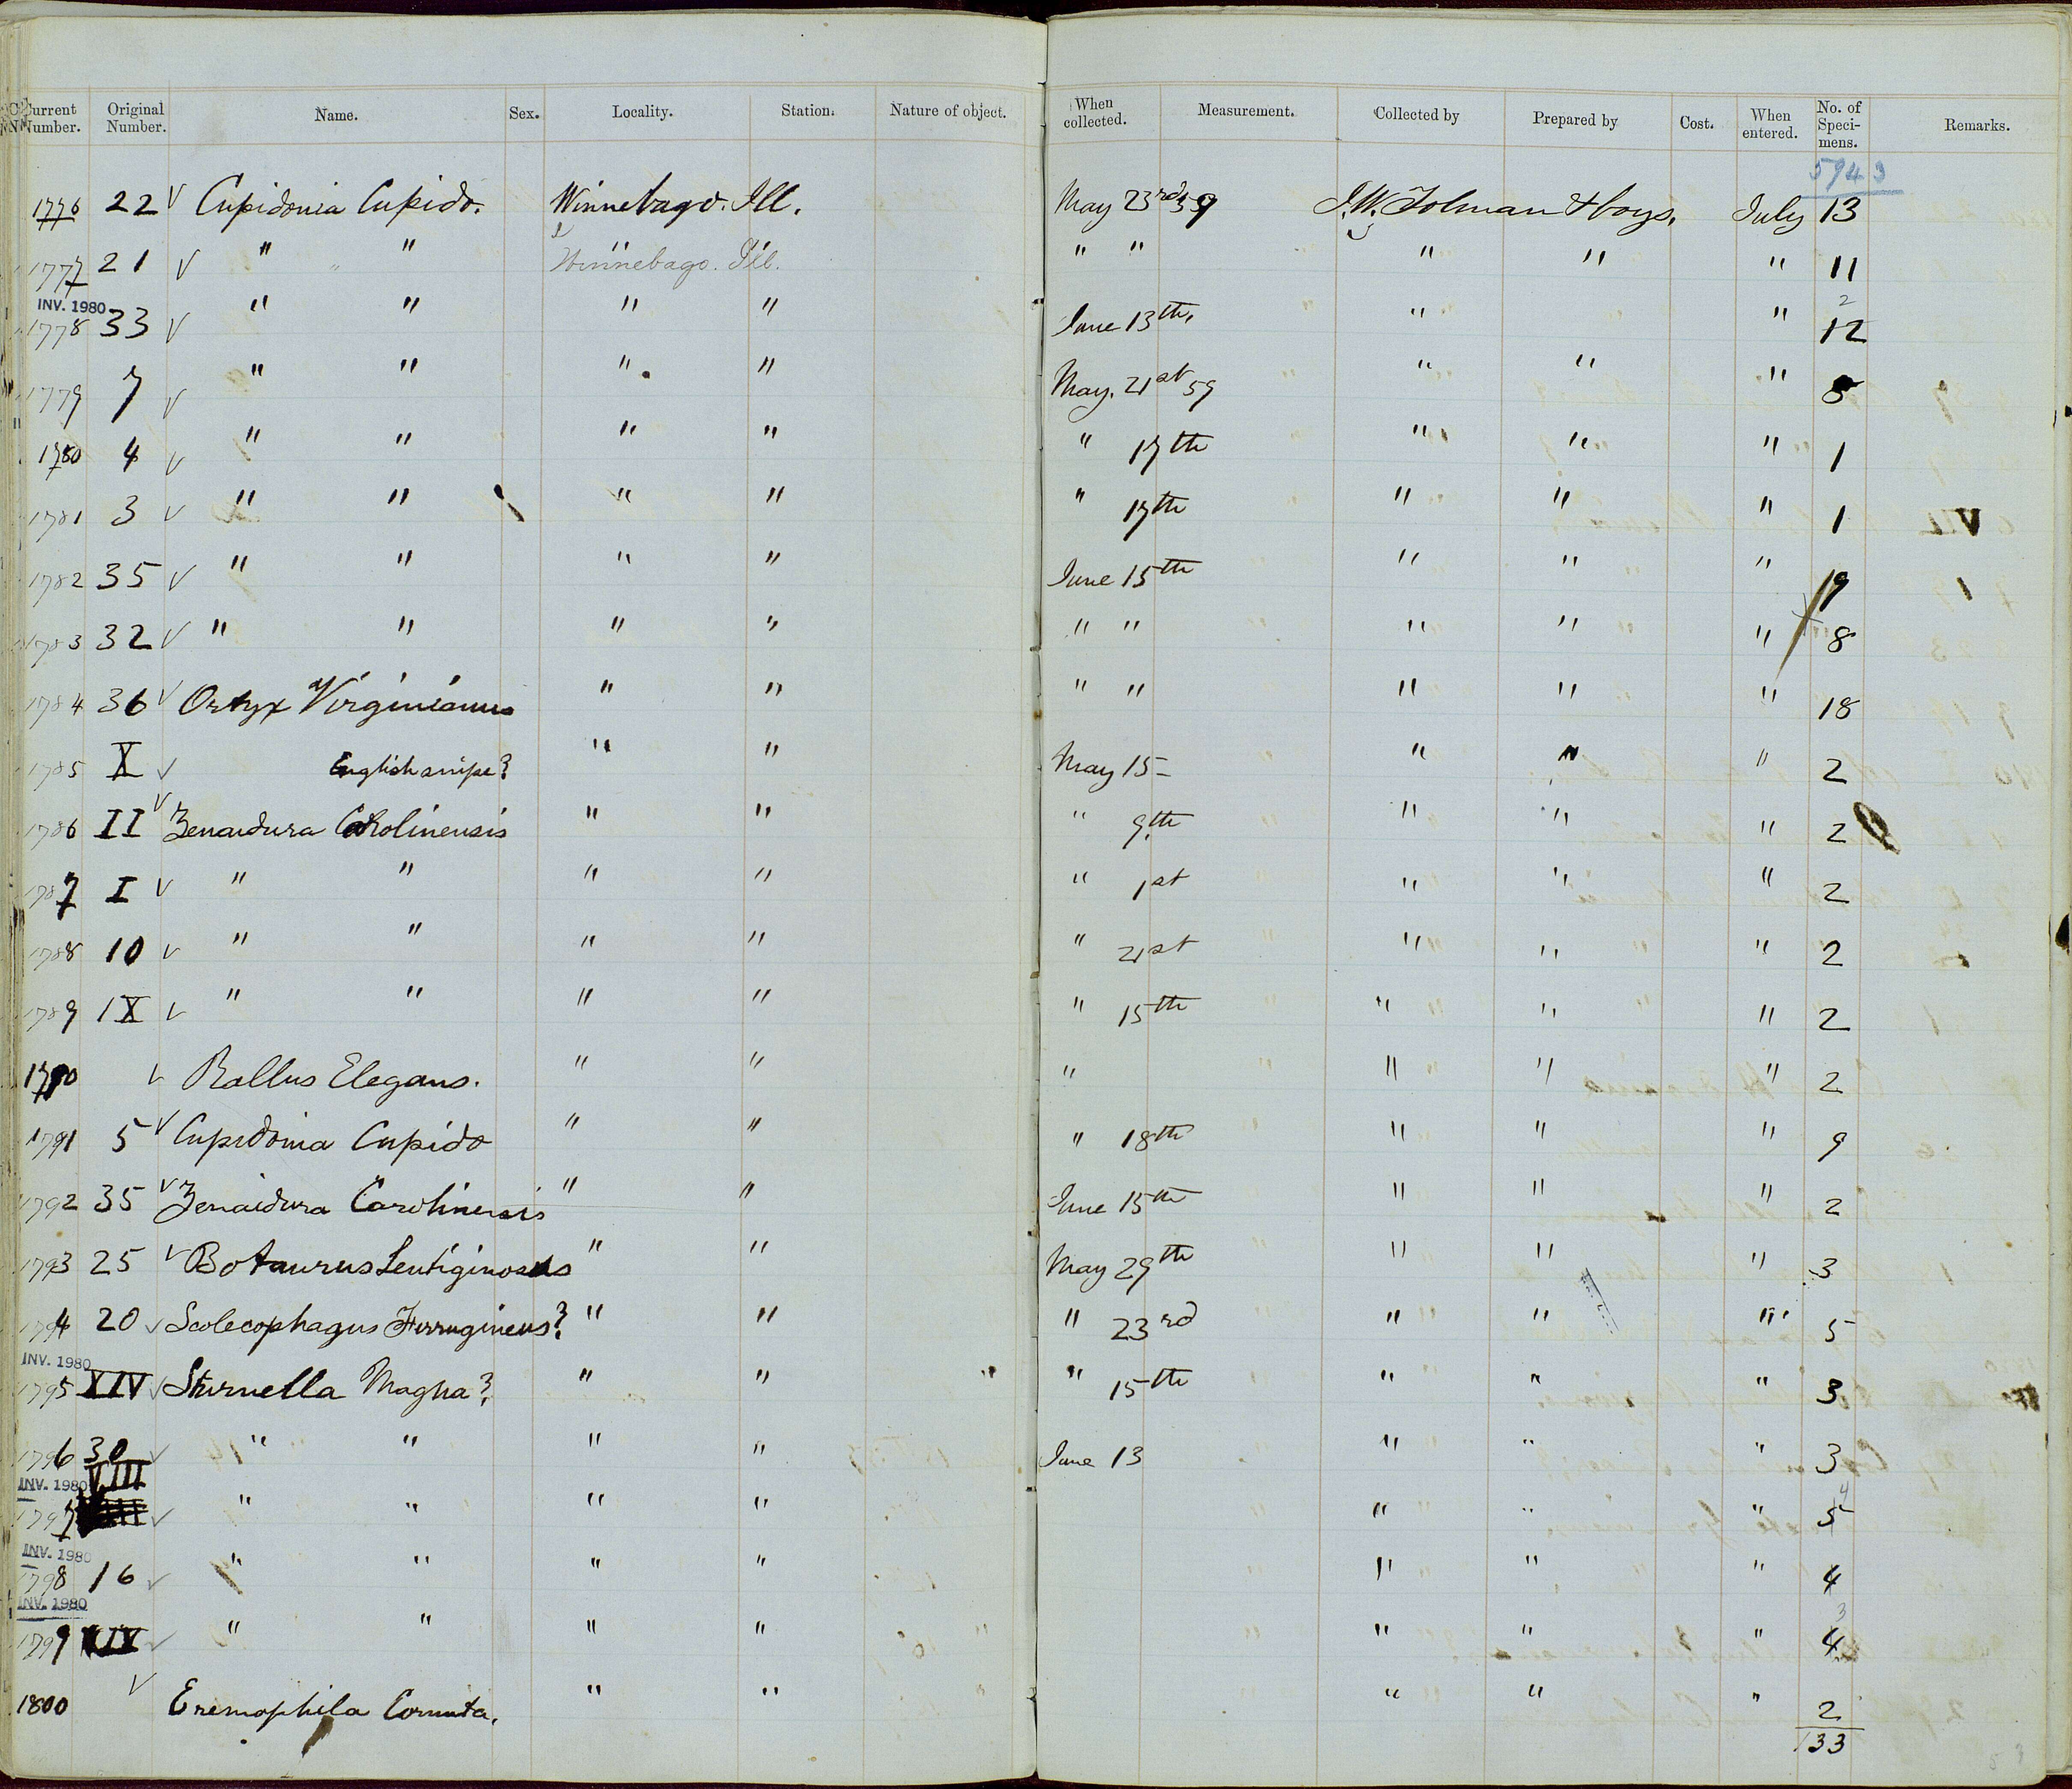 Current Number. Original Number. Name. Sex. Locality. Station. Nature of object. When collected. Measurement. Collected by Prepared by Cost. When entered. No. of Speci-mens. Remarks.
5943
1776 22 √ Cupidonia Cupido. Winnebago. Ill. May 23rd 59 J. W. Tolman & boys. July 13
1777 21 √ " " Winnebago. Ill. " " " " " 11
INV. 1980
1778 33 √ " " " " June 13th. " " 2 12
1779 7 √ " " " " May. 21st 59 " " " 8
1780 4 √ " " " " " 17th " " " 1
1781 3 √ " " " " " 17th " " " 1
1782 35 √ " " " " June 15th " " " 19
1783 32 √ " " " " " " " " " 8
1784 36 √ Ortyx Virginianus " " " " " " " 18
1785 X √ English snipe? " " May 15 – " " " 2
1786 II √ Zenaidura Carolinensis " " " 9th " " " 2
1787 I √ " " " " " 1st " " " 2
1788 10 √ " " " " " 21st " " " 2
1789 IX √ " " " " " 15th " " " 2
1790 √ Rallus Elegans. " " " " " " 2
1791 5 √ Cupidonia Cupido " " " 18th " " " 9
1792 35 √ Zenaidura Carolinensis " " June 15th " " " 2
1793 25 √ Botaurus Lentiginosus " " May 29th " " " 3
1794 20 √ Scolecophagus Ferrugineus? " " " 23rd " " " 5
INV. 1980
1795 XIV √ Sturnella Magna? " " " " 15th " " " 3
1796 30 √ " " " " June 13 " " " 3
INV. 1980 VIII
1797 √ " " " " " " " 4 5
INV. 1980
1798 16 √ " " " " " " " 4
INV. 1980
1799 XIV √ " " " " " " " 3 4
1800 √ Eremophila Cornuta. " " " " " 2
133